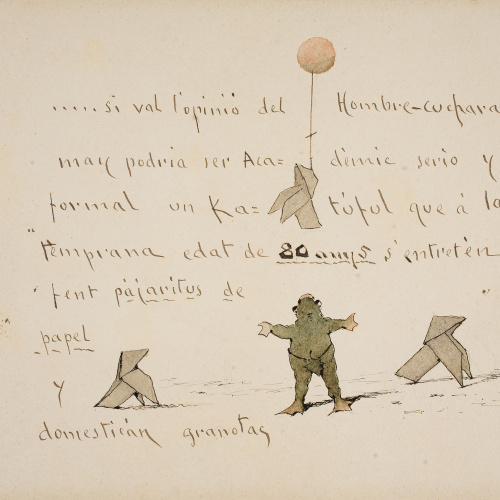 .....si val l'opinió del Hombre-cuchara
may podria ser Aca= dèmic serio y
formal un Ka= túful que á la
"temprana edat de 80 anys s'entretèn
fent pajaritus de "
papel
y
domesticán granotas